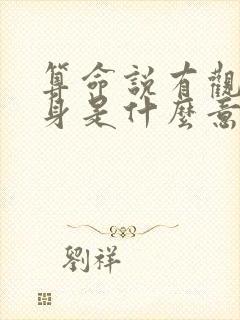 算命說有觀
身是什麼意
劉祥